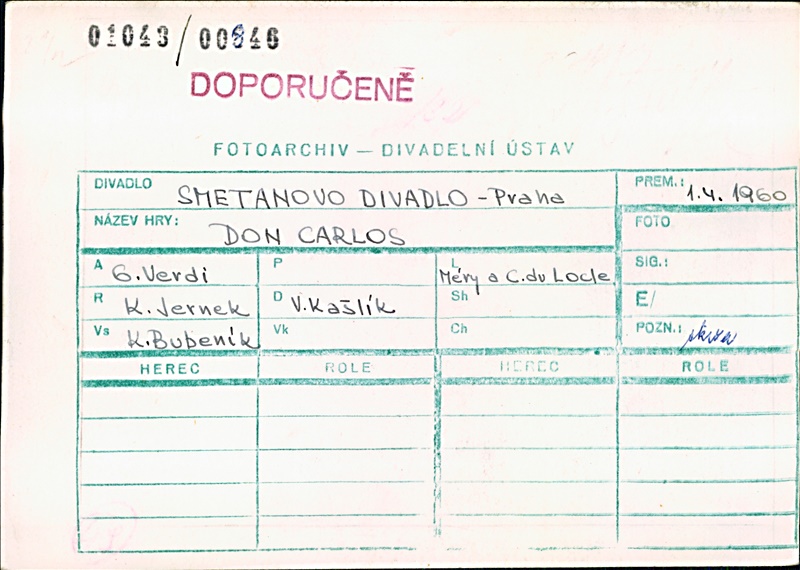 01043/00846
DOPORUČENĚ
FOTOARCHIV — DIVADELNÍ ÚSTAV
DIVADLO SMETANOVO DIVADLO - Praha
PREM.: 1.4. 1960
NÁZEV HRY: DON CARLOS
FOTO
A G. Verdi
P
L Méry a C. du Locle
SIG.:
R K. Jernek
D V. Kašlík
Sh
E/
Vs K. Bubeník
Vk
Ch
POZN.: skica
HEREC ROLE HEREC ROLE